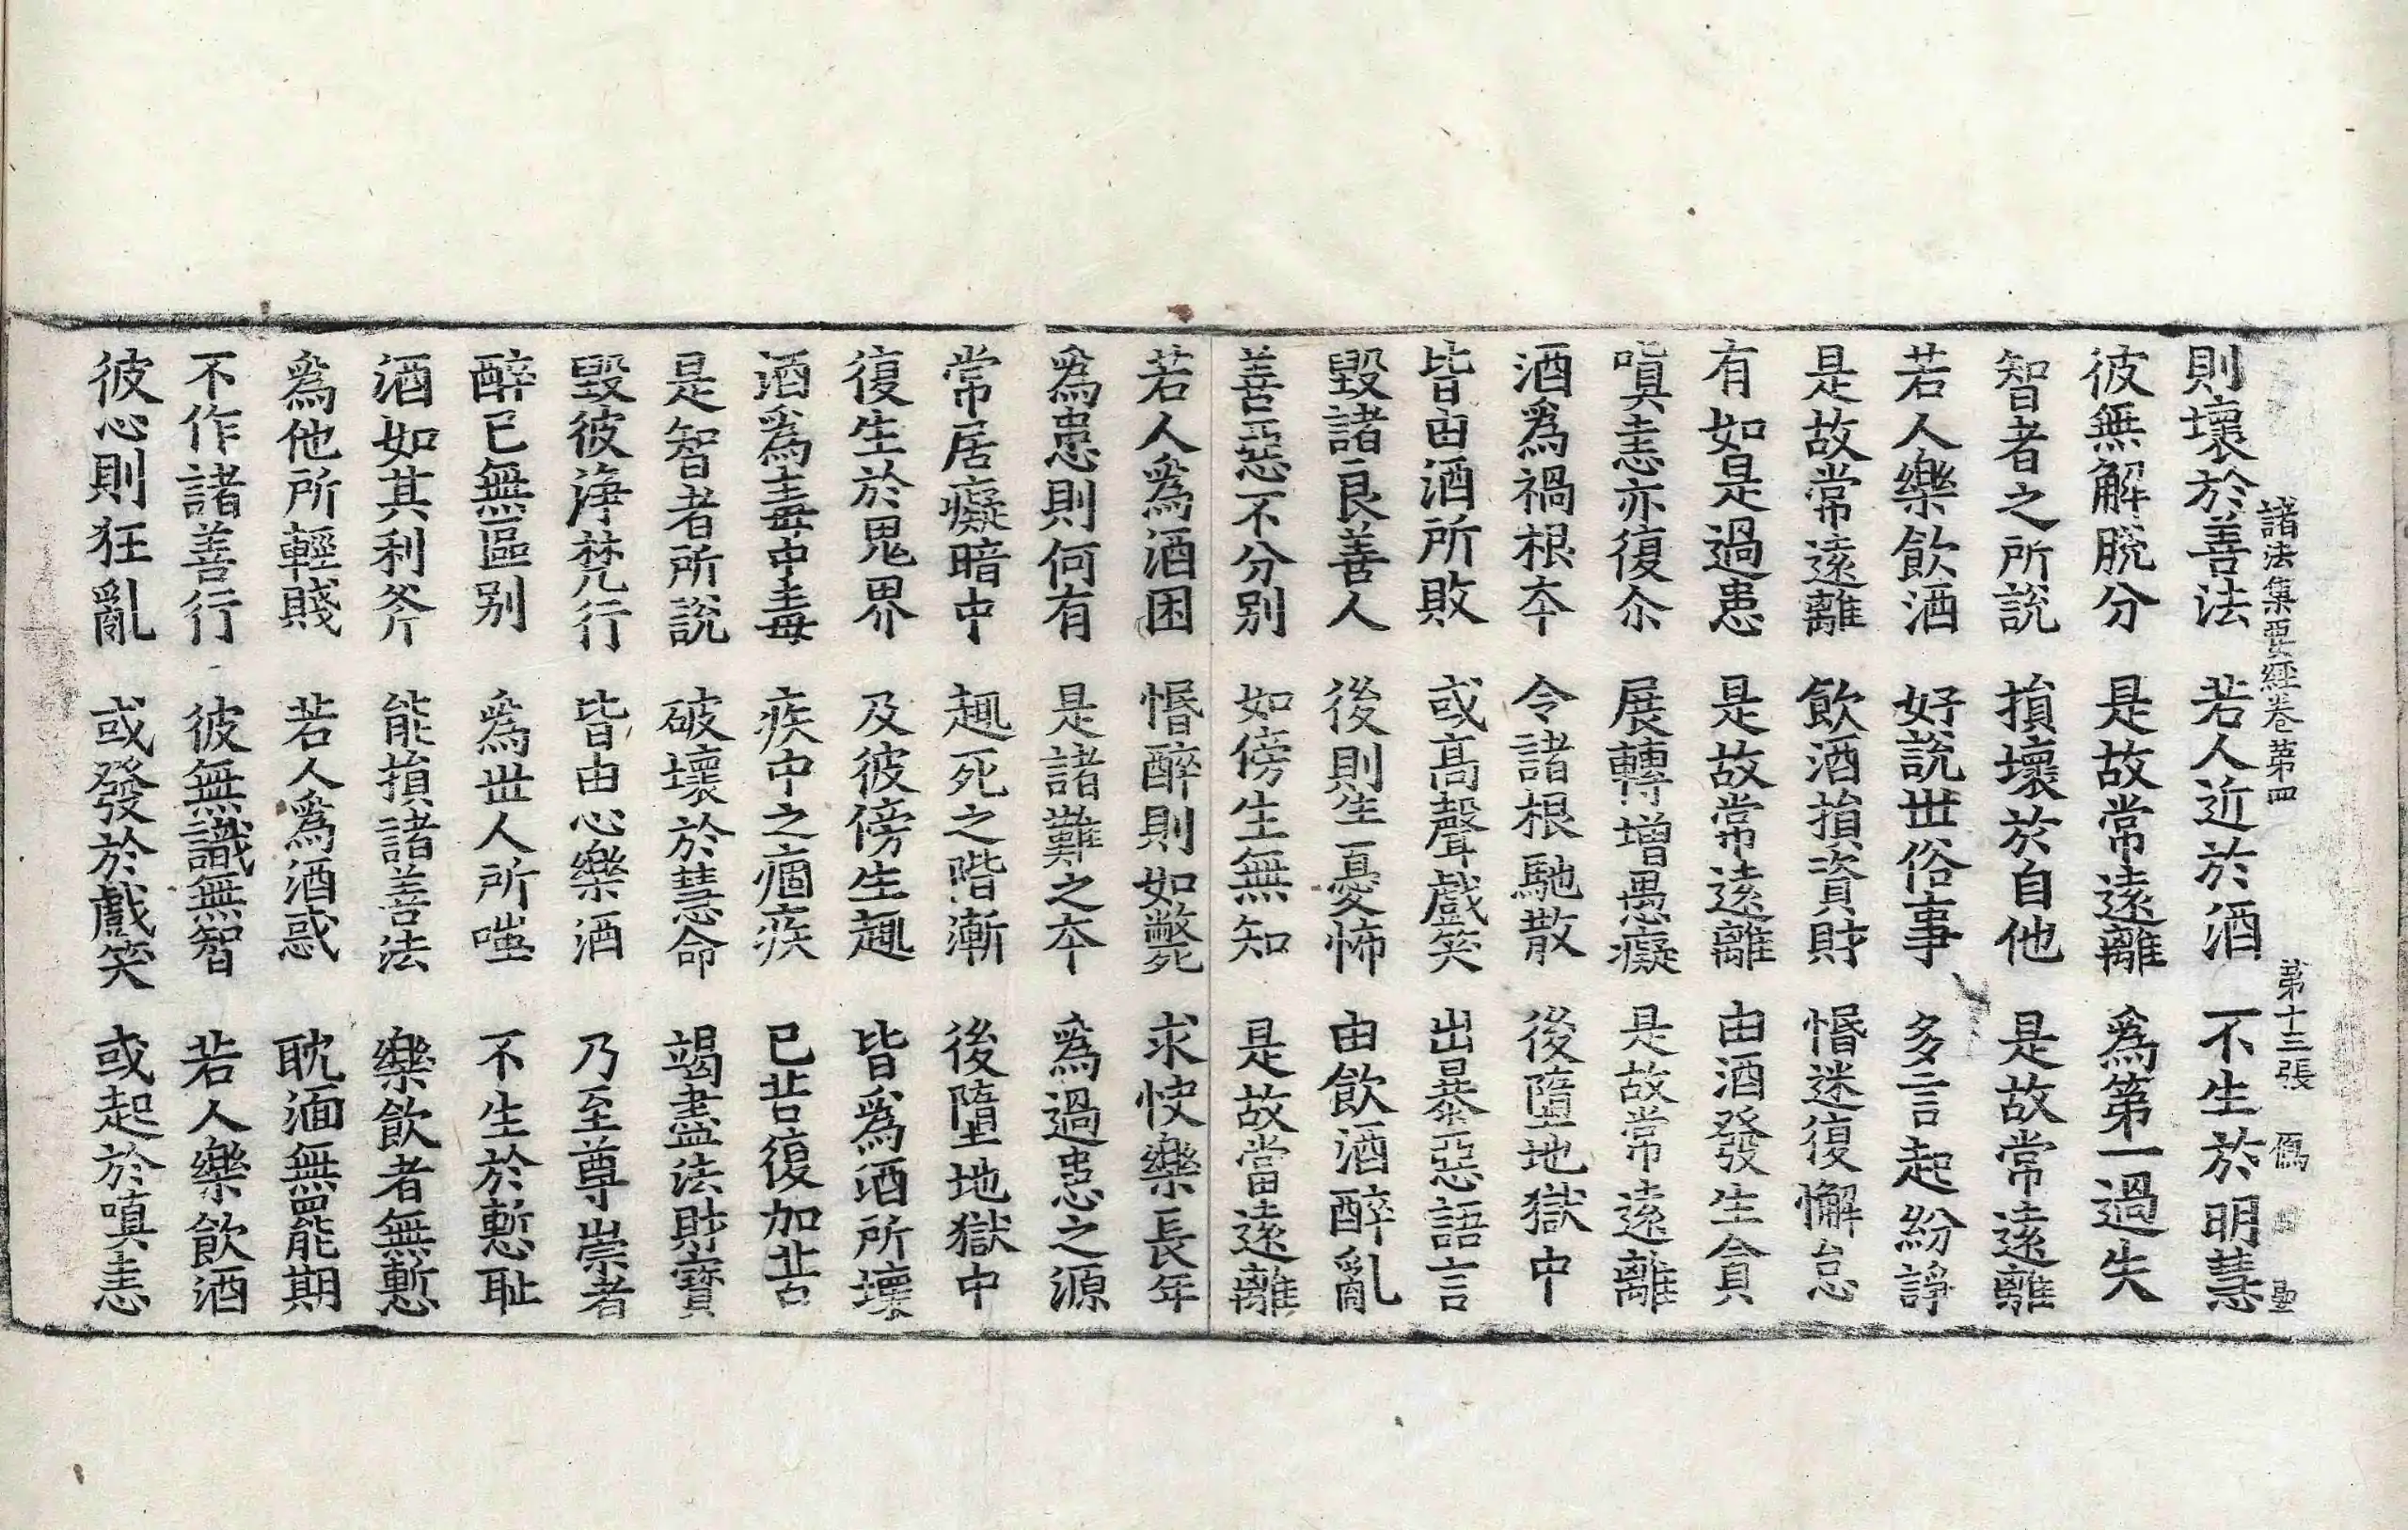 諸法集要經卷第四 第十三張 傿
則壞於善法 若人近於酒 不生於明慧
彼無解脫分 是故常遠離 爲第一過失
智者之所說 損壞於自他 是故常遠離
若人樂飲酒 好說世俗事 多言起紛諍
是故常遠離 飲酒損資財 惛迷復懈怠
有如是過患 是故常遠離 由酒發生貪
嗔恚亦復尒 展轉增愚癡 是故常遠離
酒爲禍根本 令諸根馳散 後墮地獄中
皆由酒所敗 或高聲戲笑 出暴惡語言
毀諸良善人 後則生憂怖 由飲酒醉亂
善惡不分別 如傍生無知 是故當遠離
若人爲酒困 惛醉則如斃死 求快樂長年
爲患則何有 是諸難之本 爲過患之源
常居癡暗中 趣死之階漸 後墮地獄中
復生於鬼界 及彼傍生趣 皆爲酒所壞
酒爲毒中毒 疾中之痼疾 已苦復加苦
是智者所說 破壞於慧命 竭盡法財寶
毀彼淨梵行 皆由心樂酒 乃至尊崇者
醉已無區別 爲世人所嗤 不生於慙耻
酒如其利斧 能損諸善法 樂飲者無慙
爲他所輕賤 若人爲酒惑 耽湎無能期
不作諸善行 彼無識無智 若人樂飲酒
彼心則狂亂 或發於戲笑 或起於嗔恚